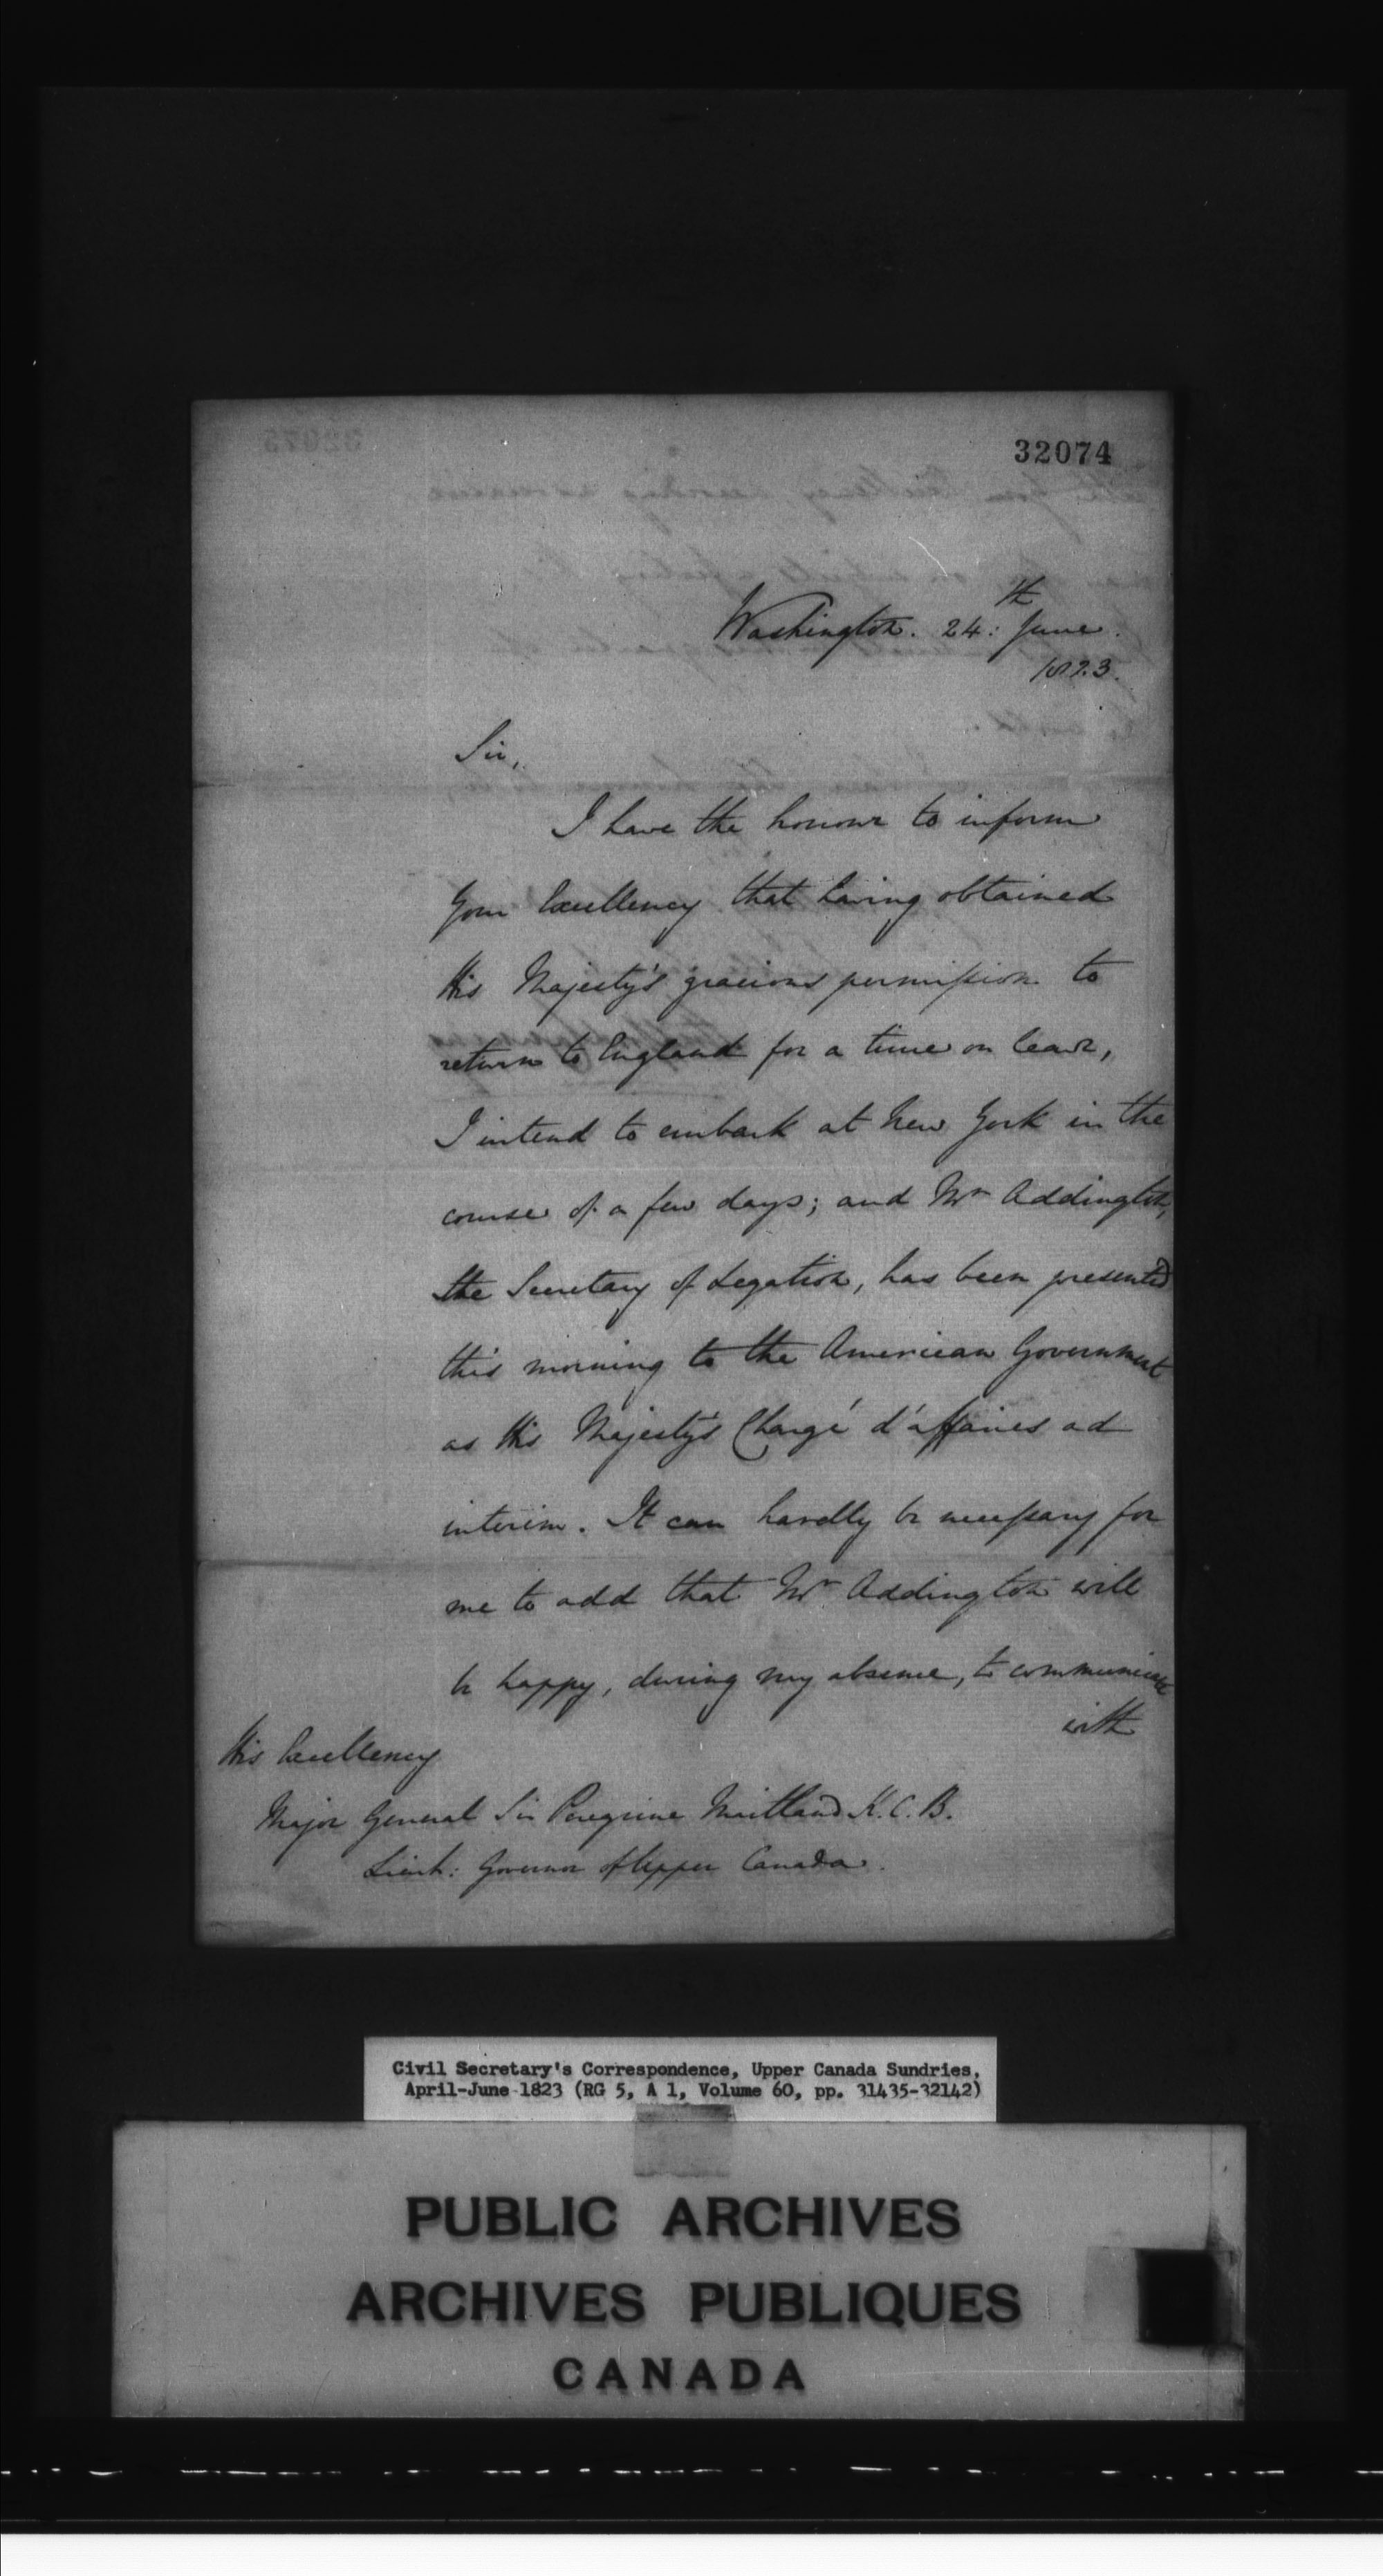 32074
Washington. 24:th June.
1823.
Sir,
I have the honour to inform
Your Excellency that having obtained
His Majesty's gracious permission to
return to England for a time on leave,
I intend to embark at New York in the
course of a few days; and Mr Addington,
the Secretary of Legation, has been presented
this morning to the American Government
as His Majesty's Chargé d'affaires ad
interim. It can hardly be necessary for
me to add that Mr Addington will
be happy, during my absence, to communicate
with
His Excellency
Major General Sir Peregrine Maitland K.C.B.
Lieut: Governor of Upper Canada.
Civil Secretary's Correspondence, Upper Canada Sundries,
April-June 1823 (RG 5, A 1, Volume 60, pp. 31435-32142)
PUBLIC ARCHIVES
ARCHIVES PUBLIQUES
CANADA